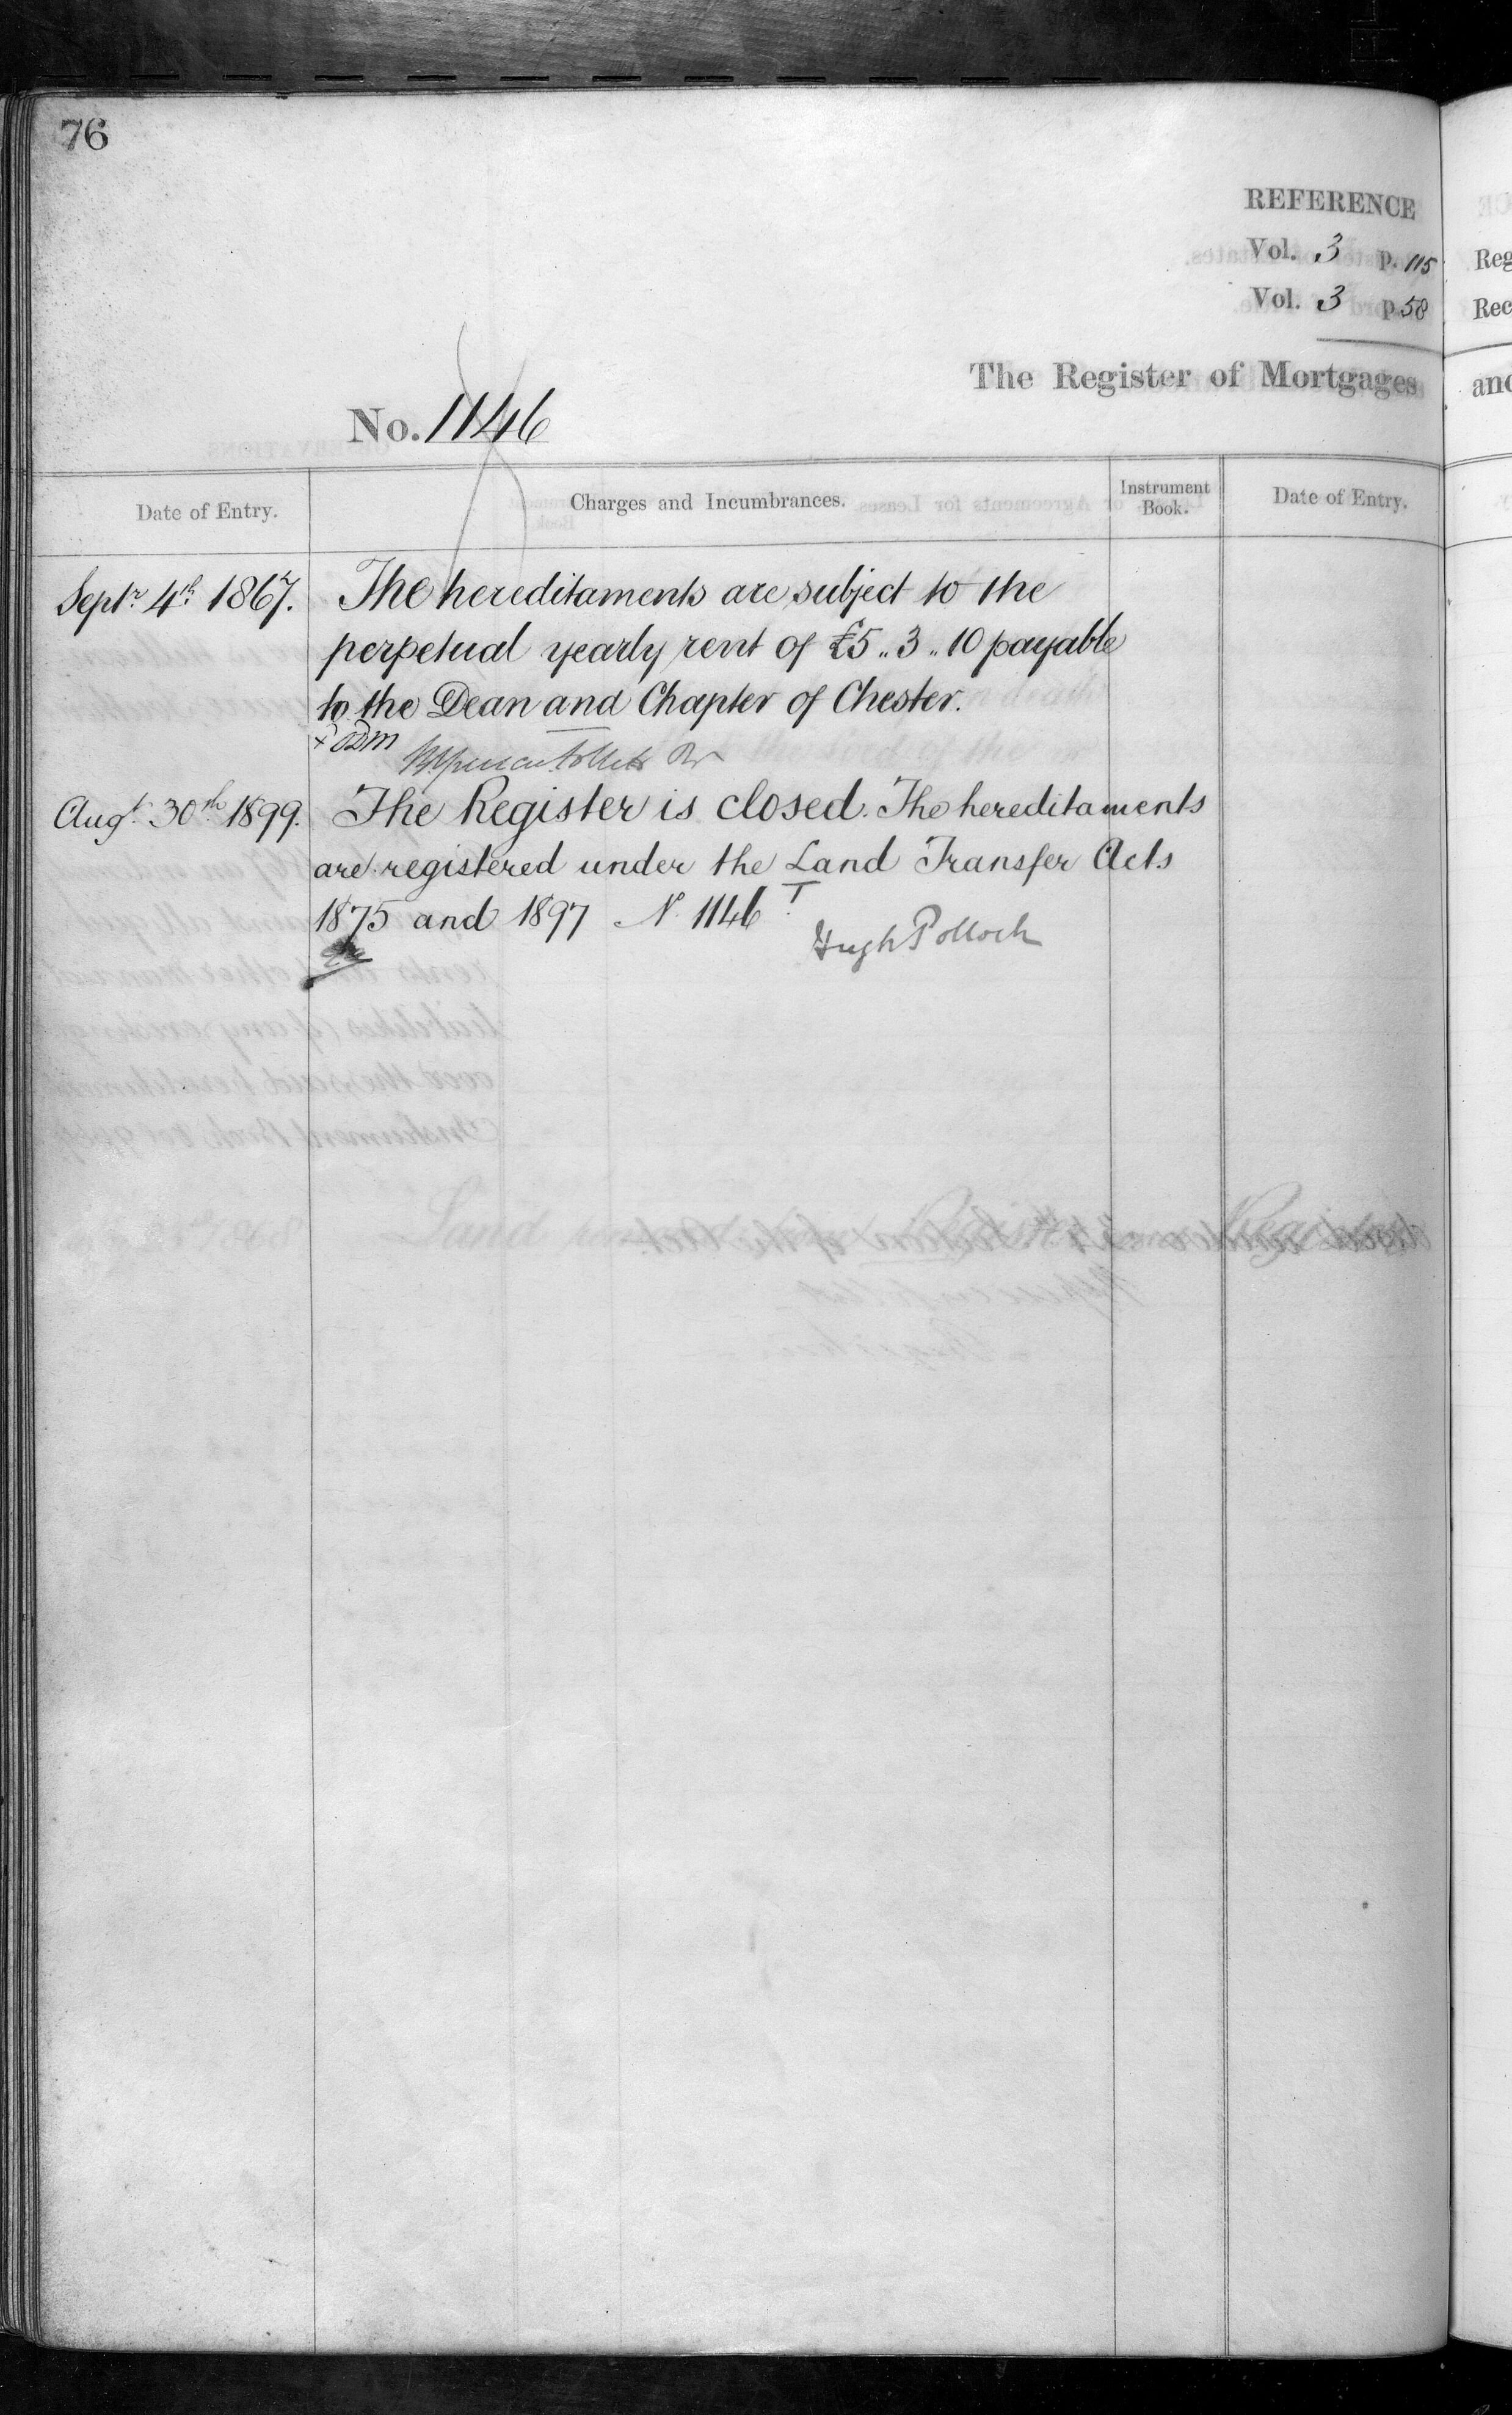 76
REFERENCE
Vol. 3 p. 115
Vol. 3 p 58
The Register of Mortgages
No. 1146
Date of Entry.
Charges and Incumbrances.
Instrument Book.
Date of Entry.
Septr. 4th 1867.
The hereditaments are subject to the
perpetual yearly rent of £5 .. 3 .. 10 payable
to the Dean and Chapter of Chester.
Augt. 30th 1899.
The Register is closed. The hereditaments
are registered under the Land Transfer Acts
1875 and 1897 No. 1146
Hugh Pollock
Reg
Rec
and